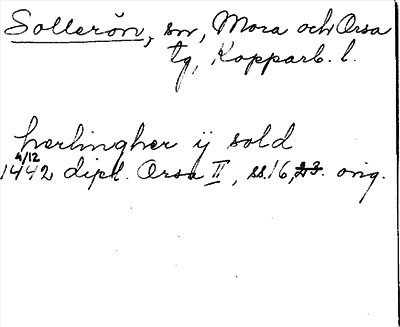 Sollerön, sn, Mora och Orsa
tg, Kopparb. l.
herlingher ij sold
4/12
1442 dipl. Orsa II, ss. 16, 23. orig.